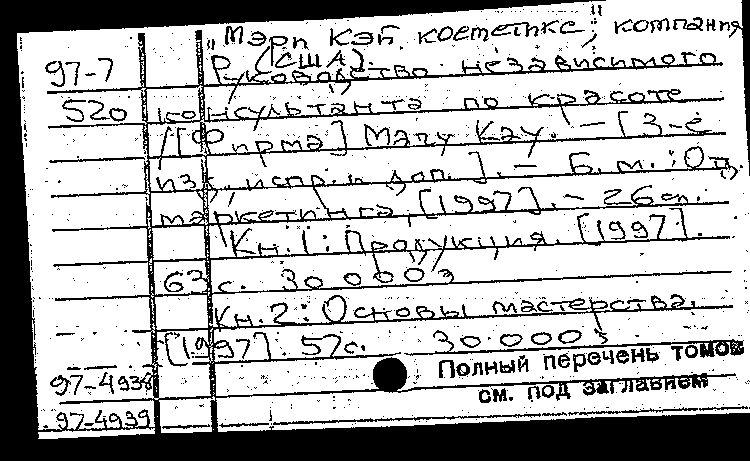 "Мэри Кэй косметикс", компания
(США).
97-7 Руководство независимого
520 консультанта по красоте
/ [Фирма] Mary Kay. – [3-е
изд., испр. и доп.]. – Б. м. : Отд.
маркетинга, [1997]. – 26 см.
Кн. 1: Продукция. [1997].
63 с. 30 000э
Кн. 2: Основы мастерства.
[1997]. 57с. 30 000э
Полный перечень томов
97-4938 см. под заглавием
97-4939